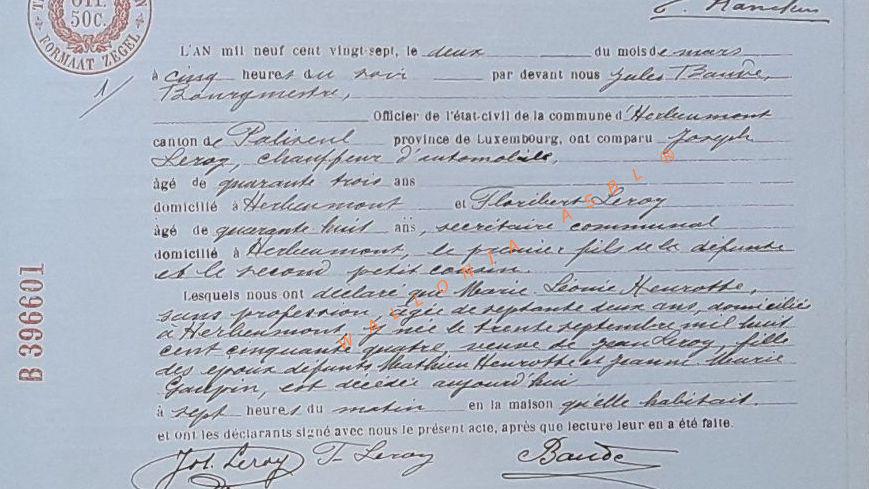 OTL
50C.
FORMAAT ZEGEL
1/
L'AN mil neuf cent vingt-sept, le deux du mois de mars
à cinq heures du soir par devant nous Jules Baude,
Bourgmestre,
Officier de l'état-civil de la commune d'Herbeumont
canton de Paliseul province de Luxembourg, ont comparu Joseph
Leroy, chauffeur d'automobile,
âgé de quarante trois ans
domicilié à Herbeumont et Floribert Leroy
âgé de quarante huit ans, secrétaire communal
domicilié à Herbeumont, le premier fils de la défunte
et le second petit cousin.
Lesquels nous ont déclaré que Marie Léonie Henrotte,
sans profession âgée de septante deux ans, domiciliée
à Herbeumont, y née le trente septembre mil huit
cent cinquante quatre, veuve de Jean Leroy, fille
des époux défunts Mathieu Henrotte et Jeanne Marie
Goupin, est décédée aujourd'hui
à sept heures du matin en la maison qu'elle habitait.
et ont les déclarants signé avec nous le présent acte, après que lecture leur en a été faite.
Jos. Leroy F. Leroy Baude
B 396601
WALLONIA ASBL ®